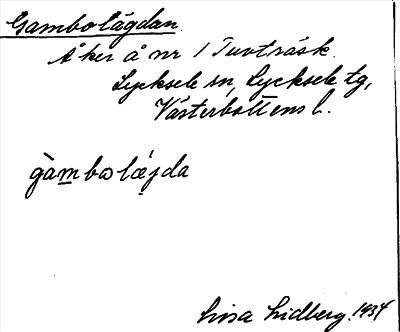 Gambolägdan.
Åker å nr 1 Tuvträsk.
Lycksele sn, Lycksele tg,
Västerbottens l.
gàmbɷlǽjda
Lisa Lidberg. 1934